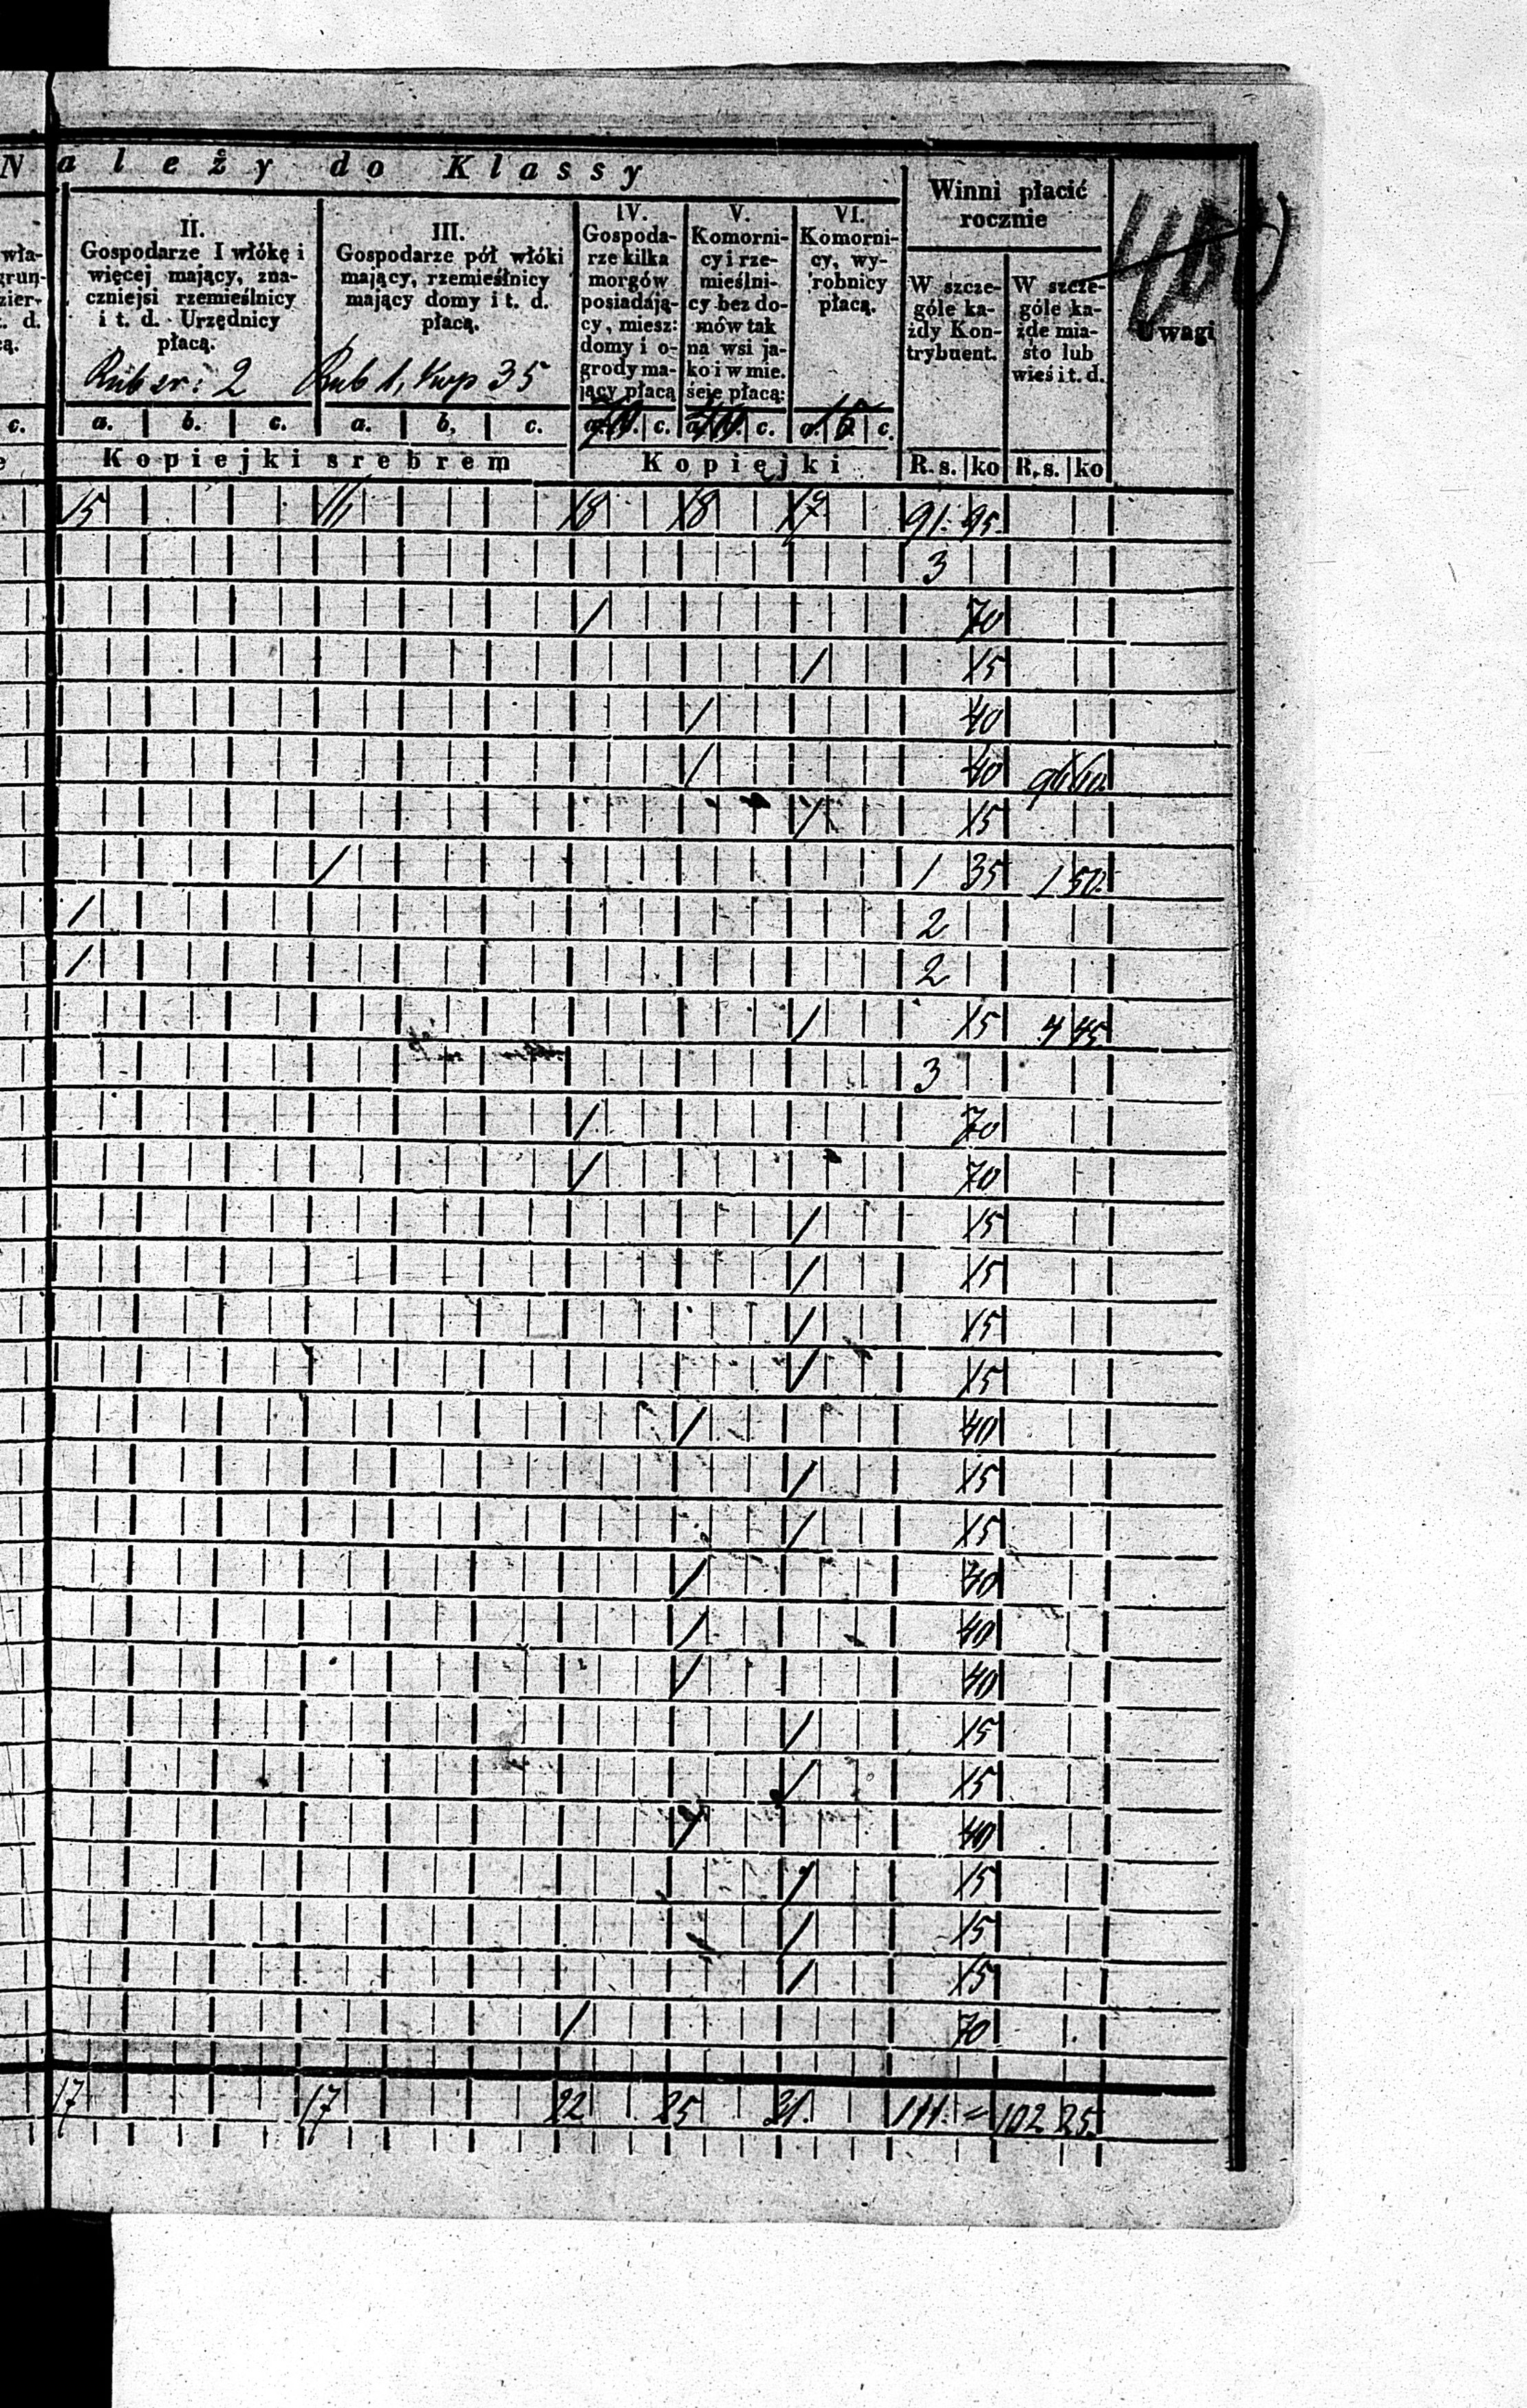 N ależy do Klassy
Winni płacić
rocznie
400
wła-
grun-
zier-
t. d.
cą.
II.
Gospodarze I włókę i
więcej mający, zna-
czniejsi rzemieślnicy
i t. d. Urzędnicy
płacą.
Rub sr: 2
III.
Gospodarze pół włóki
mający, rzemieślnicy
mający domy i t. d.
płacą.
Rub 1, kop 35
IV.
Gospoda-
rze kilka
morgów
posiadają-
cy, miesz:
domy i o-
grody ma-
jący płacą
70
V.
Komorni-
cy i rze-
mieślni-
cy bez do-
mów tak
na wsi ja-
ko i w mie.
ście płacą:
40
VI.
Komorni-
cy, wy-
robnicy
płacą.
15
W szcze-
góle ka-
żdy Kon-
trybuent.
W szcze-
góle ka-
żde mia-
sto lub
wieś i t. d.
Uwagi
c. a. b. c. a. b, c. a. c. a. c. a. b. c.
Kopiejki srebrem Kopiejki R. s. ko R. s. ko
15 11 18 18 17 91. 95.
3
1 70
1 15
1 40
1 40 96 60.
1 15
1 1 35 1 50.
1 2
1 2
1 15 4 45.
3
1. 70
1 70
1 15
1 15
1 15
1 15
1 40
1 15
1 15
1 40
1 40
1 40
1 15
1 15
1 40
1 15
1 15
1 15
1 70
17 17 22 25 31. 111. = 102 25.